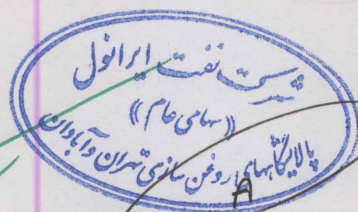 شرکت نفت ایرانول
«(سهامی عام)»
پالایشگاههای روغن سازی تهران و آبادان